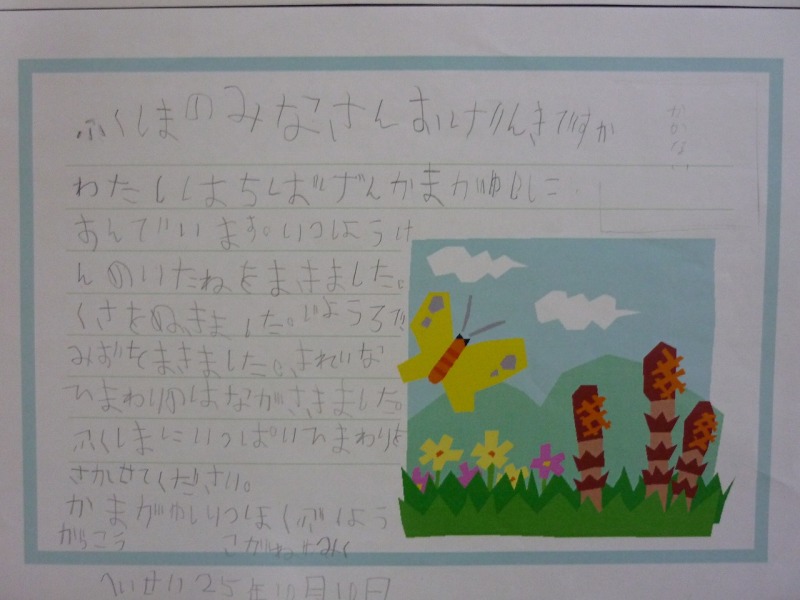 ふくしまのみなさんおげんきですか
かかない
わたしはちばげんかまがゆしに
あんでいます。いつしようけ
んめいたねをまきました。
くさをぬきました。じようろで
みずをまきました。きれいな
ひまわりのはながさきました。
ふくしまにいっぱいひまわりを
さかせてください。
かまがゆしりつほくぶしよう
がっこう こがねみく
へいせい25年10月10日